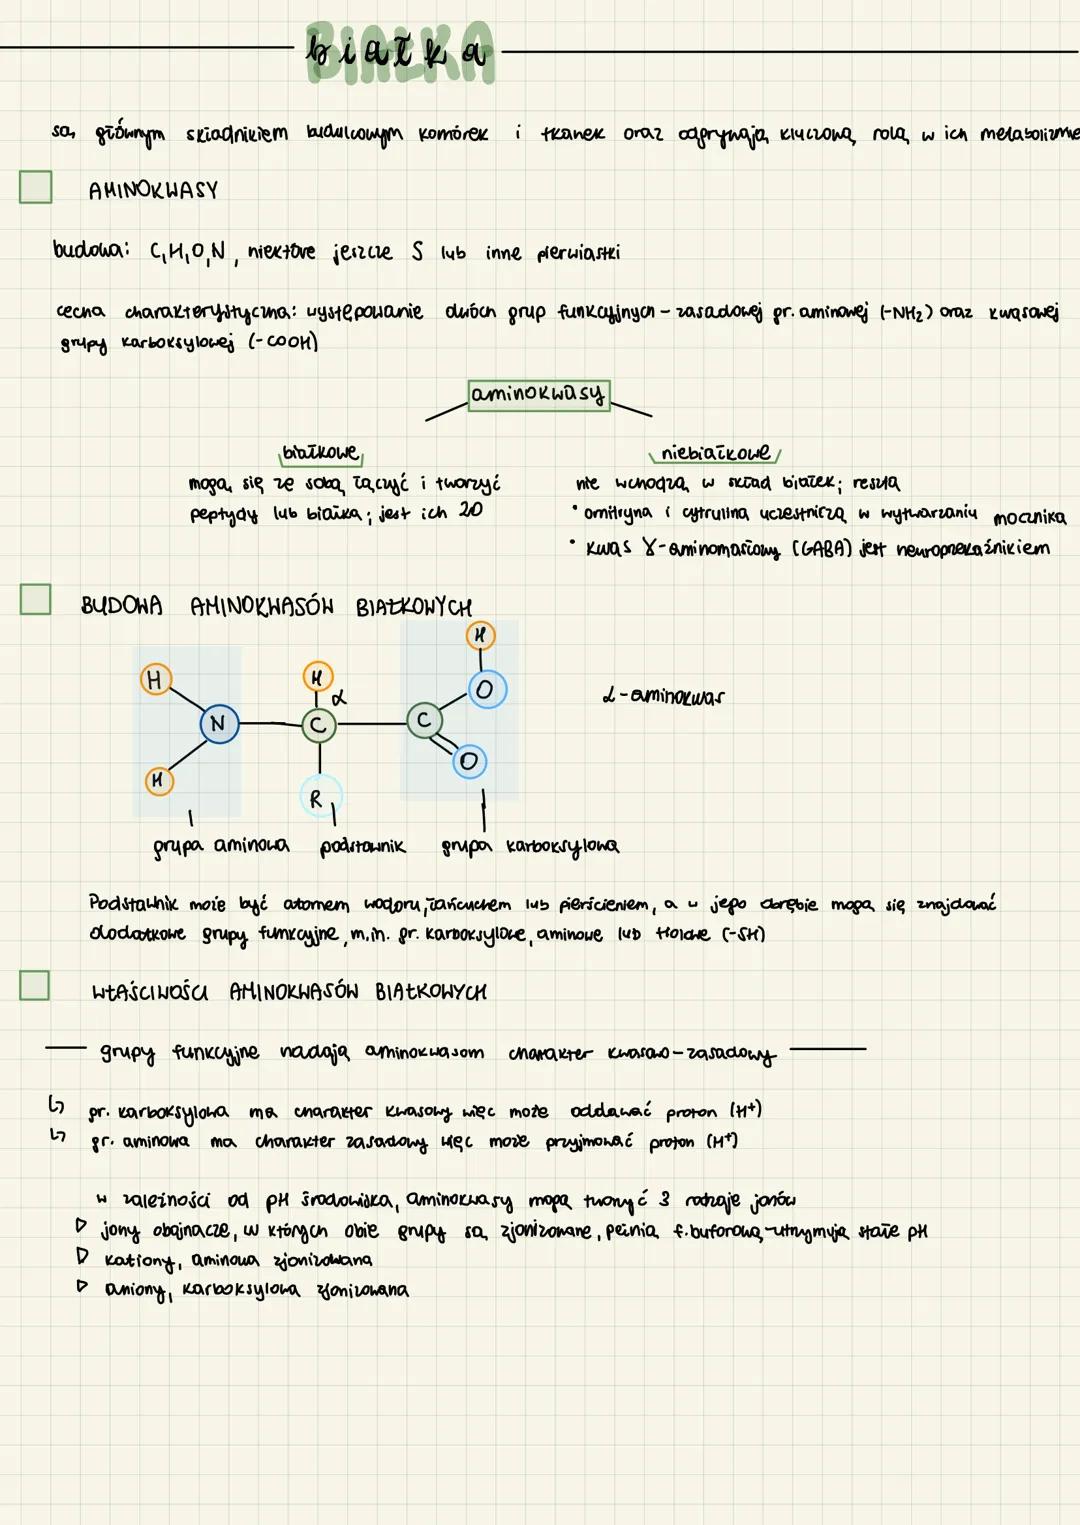 białka
są głównym składnikiem budulcowym komórek i tkanek oraz odgrywają kluczową rolę w ich metabolizmie
AMINOKWASY
budowa: C,H,O,N, niektóre jeszcze S lub inne pierwiastki
cecha charakterystyczna: występowanie dwóch grup funkcyjnych - zasadowej gr. aminowej (-NH₂) oraz kwasowej
grupy karboksylowej (-COOH)
aminokwasy
białkowe
mogą się ze sobą łączyć i tworzyć
peptydy lub białka; jest ich 20
niebiałkowe
nie wchodzą w skład białek; reszta
• ornitryna i cytrulina uczestniczą w wytwarzaniu mocznika
• kwas γ-aminomasłowy (GABA) jest neuroprzekaźnikiem
BUDOWA AMINOKWASÓW BIAŁKOWYCH
H H H
α O
N C C
H R O
α-aminokwas
grupa aminowa podstawnik grupa karboksylowa
Podstawnik może być atomem wodoru, łańcuchem lub pierścieniem, a w jego obrębie mogą się znajdować
dodatkowe grupy funkcyjne, m.in. gr. karboksylowe, aminowe lub tiolowe (-SH)
WŁAŚCIWOŚCI AMINOKWASÓW BIAŁKOWYCH
grupy funkcyjne nadają aminokwasom charakter kwasowo-zasadowy
↳ gr. karboksylowa ma charakter kwasowy więc może oddawać proton (H+)
↳ gr. aminowa ma charakter zasadowy więc może przyjmować proton (H+)
w zależności od pH środowiska, aminokwasy mogą tworzyć 3 rodzaje jonów
▷ jony obojnacze, w których obie grupy są zjonizowane, pełnią f. buforową - utrzymują stałe pH
▷ kationy, aminowa zjonizowana
▷ aniony, karboksylowa zjonizowana